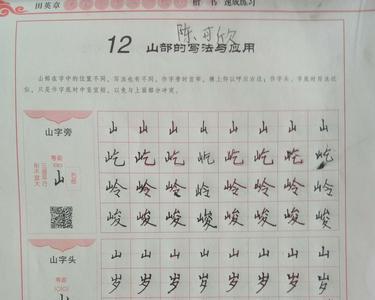 田英章
楷书 速成练习
陈可欣
12 山部的写法与应用
山部在字中的位置不同，写法也有不同。作字旁时宜窄，横上仰以呼应右边；作字头、字底时用法近
似，只是作字底时中竖宜短，以免与上面部分冲突。
山字旁
山 山 山 山 山 山 山 山
屹 屹 屹 屹 屹 屹 屹 屹
岭 岭 岭 岭 岭 岭 岭 岭
峻 峻 峻 峻 峻 峻 峻 峻
山字头
山 山 山 山 山 山 山 山
岁 岁 岁 岁 岁 岁 岁 岁